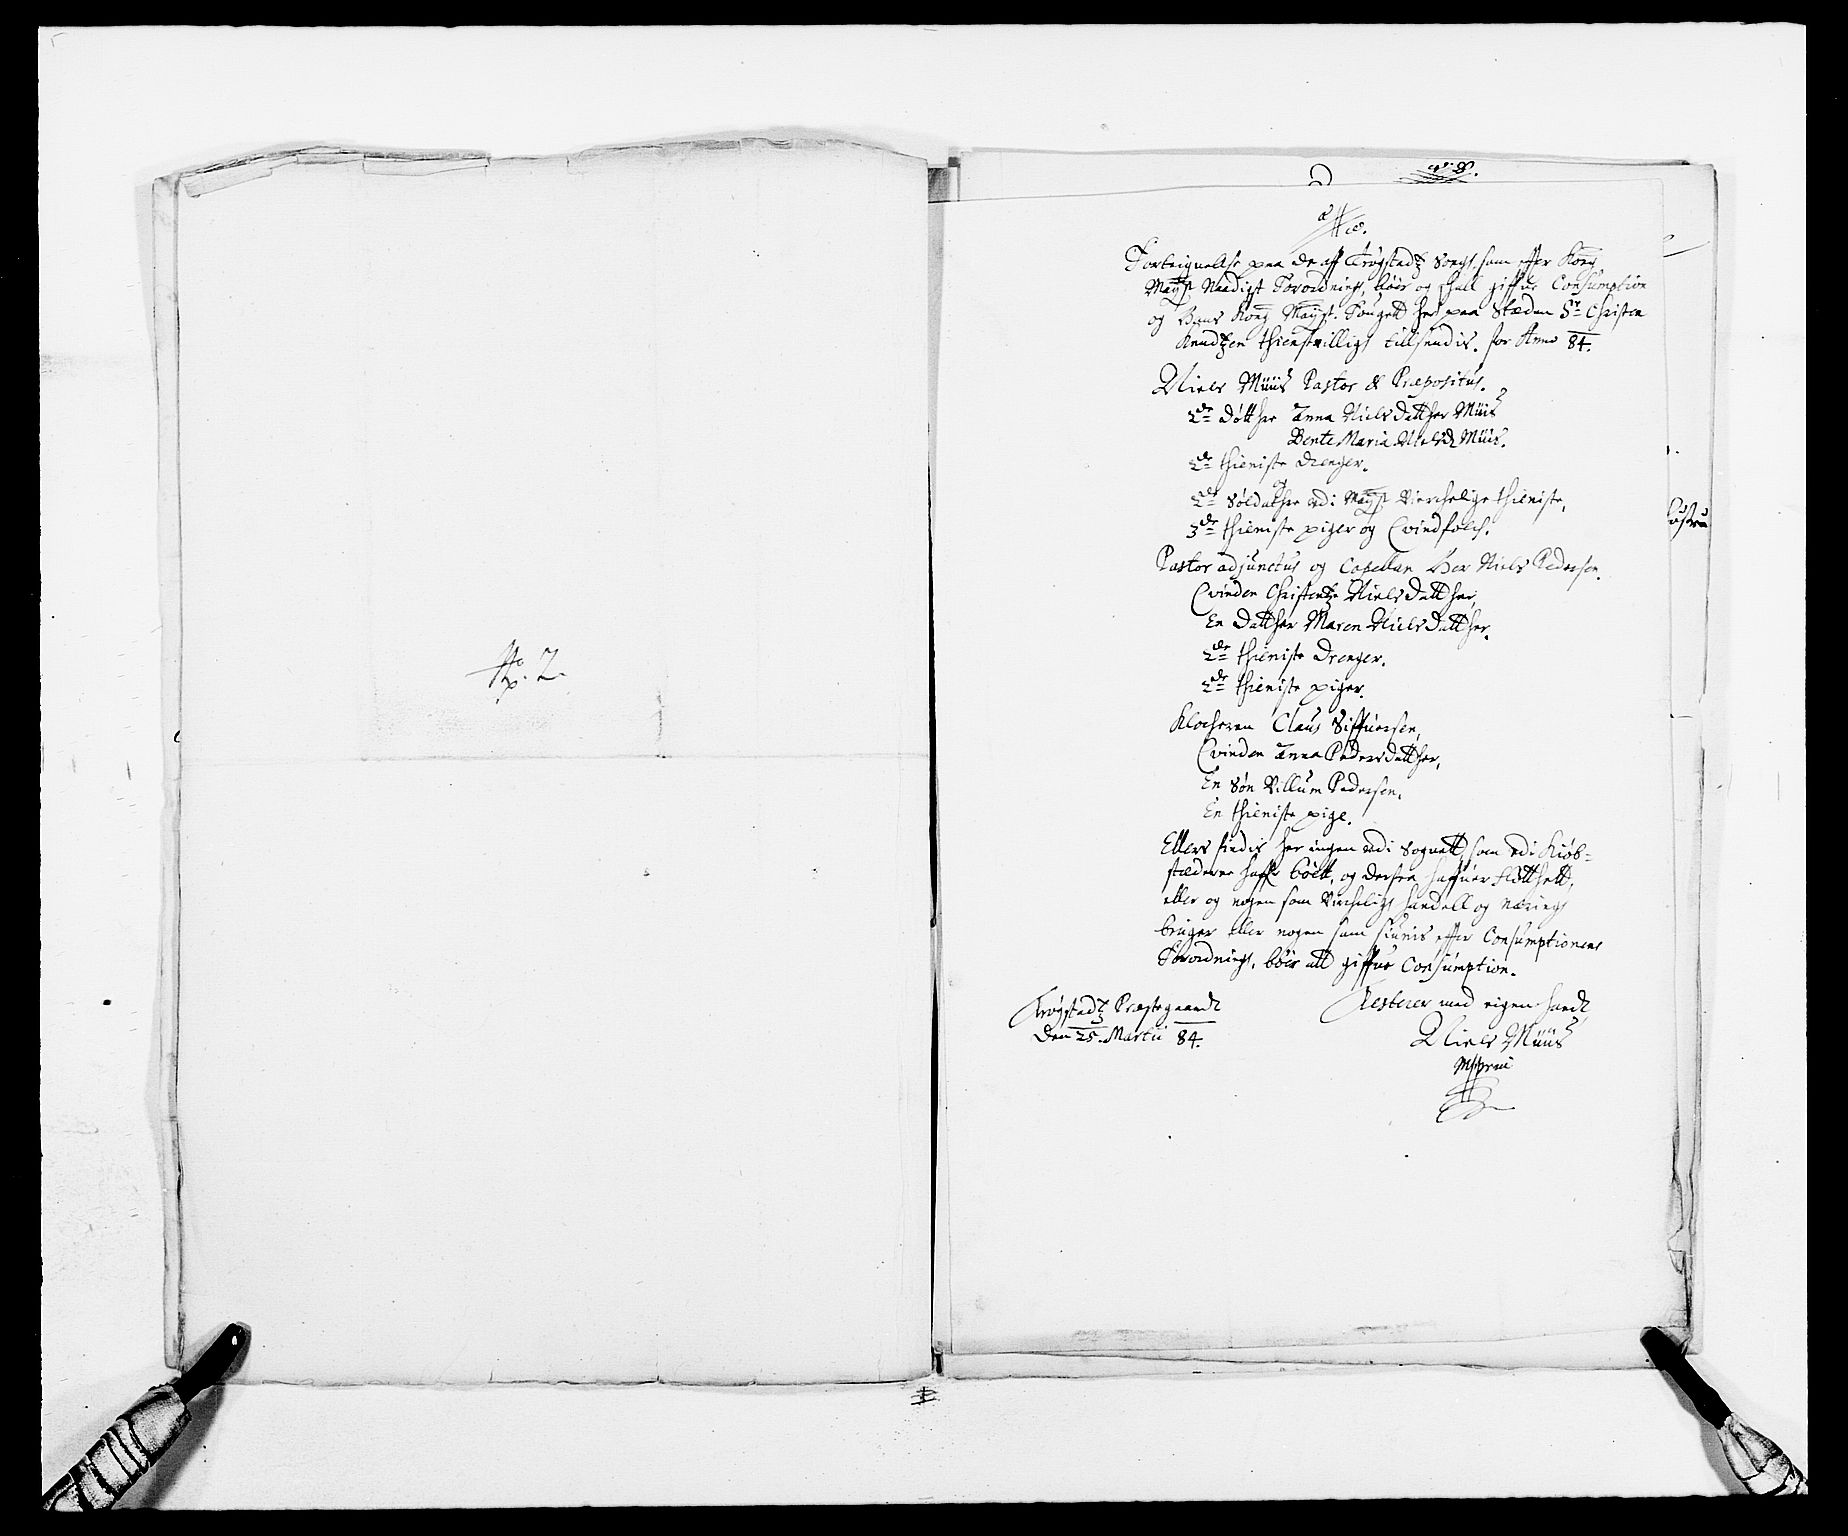 No. 2.
Forteignelse paa de aff Trøgstadz Sogn, som effter Kong
Mayst Naadigst Forordning, bør og skall giffue Consumption
og Kong Mayst. Fougett her paa Stæden Sr Christen
Knudtzen thienstvilligt tillsendis. for Anno 84.
Niels Müüs Pastor & Præpositus.
2de Døtther Anna Nielsdatther Müüs
Bente Maria Nielsd Müüs.
2de thieniste drenger.
2de Soldather udi Mayst Virchelige thieniste,
3de thieniste piger og Qvindfolch.
Pastor adjunctus og Capellan Her Niels Pedersen.
Qvinden Christentze Nielsdatther,
En datther Maren Nielsdatther.
2de thieniste Drenger.
2de thieniste piger.
Klocheren Claus Siffuersen,
Qvinden Anna Pedersdatther,
En Søn Villum Pedersen,
En thieniste pige.
Ellers findis her ingen udi Sognett, som udi Kiøb-
stæderne haffr boett, og derfra haffuer flötthett,
eller og nogen som Virchelight handell og næring
bruger eller nogen som siunis effter Consumptionens
Forordning, bør att giffue Consumption.
Trøgstadz Præstegaardt
Den 25. Martii 84.
Testerer med eigen handt
Niels Müüs
Mpria